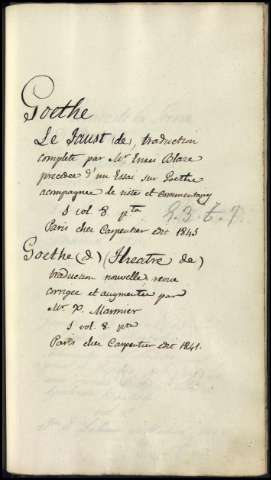 Goethe
Le Faust (de), traduction
complete par Mr Henri Blaze
precedee d'un Essai sur Goethe
acompagnée de notes et commentaires
1 vol 8 pta
Paris chez Carpentier Edit 1843
Goethe (de) (Theatre de)
traduction nouvelle revue
corrigee et augmentee par
Mr X. Marmier
1 vol. 8 pta
Paris chez Carpentier Edit 1841.